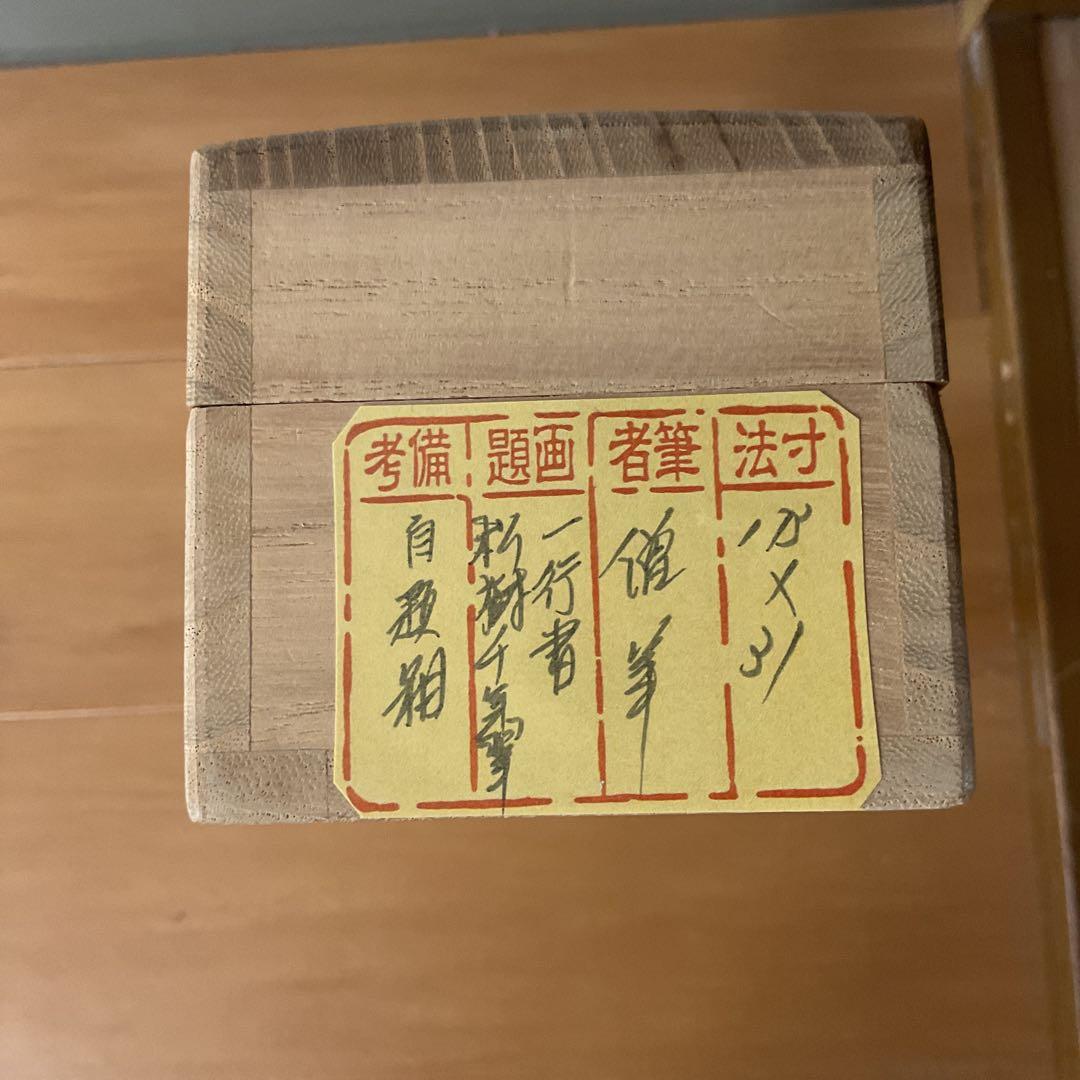 寸法
×
31
筆者
画題
一行書
松樹千年翠
備考
自題箱